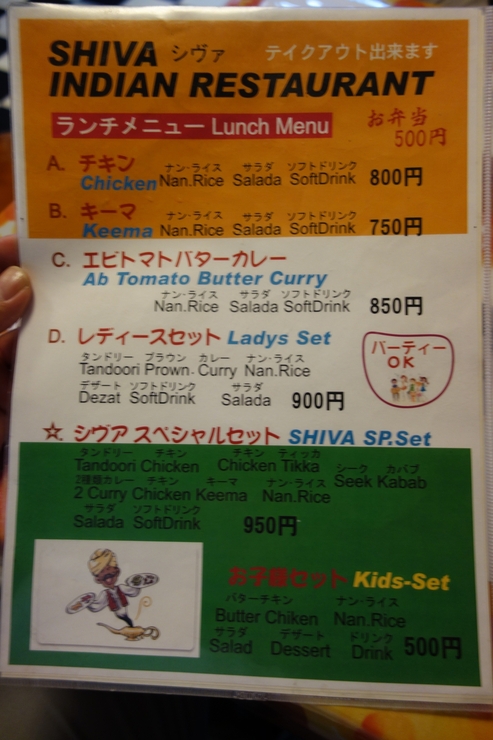 SHIVA シヴァ テイクアウト出来ます
INDIAN RESTAURANT
ランチメニュー Lunch Menu お弁当
500円
A. チキン ナン・ライス サラダ ソフトドリンク
Chicken Nan.Rice Salada SoftDrink 800円
B. キーマ ナン・ライス サラダ ソフトドリンク
Keema Nan.Rice Salada SoftDrink 750円
C. エビトマトバターカレー
Ab Tomato Butter Curry
ナン・ライス サラダ ソフトドリンク
Nan.Rice Salada SoftDrink 850円
D. レディースセット Ladys Set
タンドリー ブラウン カレー ナン・ライス
Tandoori Prown. Curry Nan.Rice
デザート ソフトドリンク サラダ
Dezat SoftDrink Salada 900円
パーティー
OK
☆. シヴァ スペシャルセット SHIVA SP.Set
タンドリー チキン チキン ティッカ シーク カバブ
Tandoori Chicken Chicken Tikka Seek Kabab
2種類カレー チキン キーマ ナン・ライス
2 Curry Chicken Keema Nan.Rice
サラダ ソフトドリンク
Salada SoftDrink 950円
お子様セット Kids-Set
バターチキン ナン・ライス
Butter Chiken Nan.Rice
サラダ デザート ドリンク
Salad Dessert Drink 500円